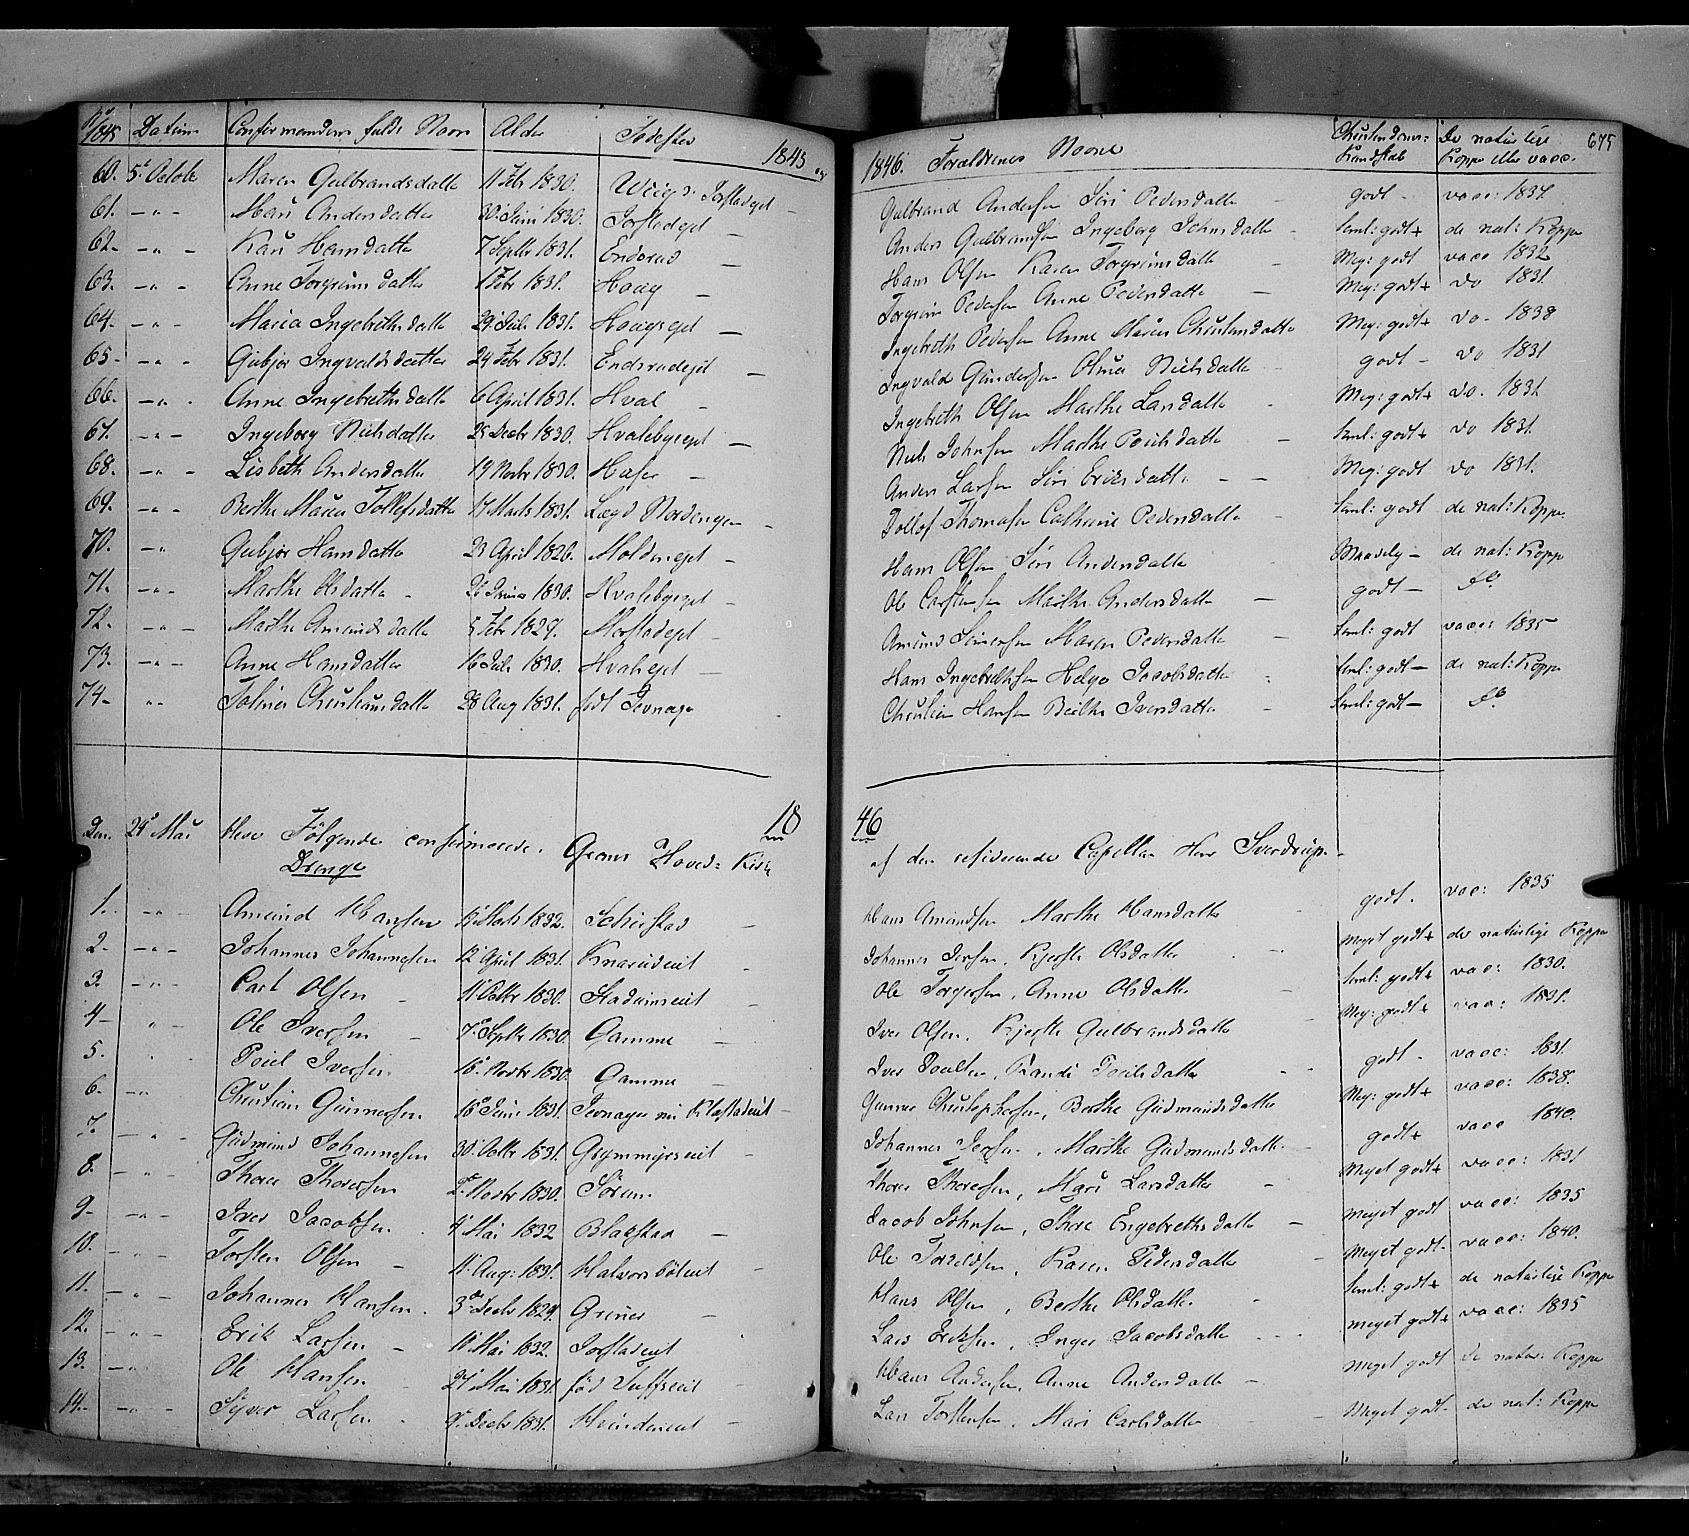 1845 Datum Confirmandens fulde Navn Alder Fødested 1845 og
1846. Forældrenes Navne Christendoms- Kundskab De naturlige Kopper eller vacc. 675
60. 5t October Maren Gulbrandsdatter 11 Febr 1830. Gulbrand Andersen Siri Pedersdatter godt - vacc: 1837.
61. -"- Mari Andersdatter 30 Juni 1830. Jorstadeget - Anders Gulbrandsen Ingeborg Johnsdatter - Seml: godt+ de nat: Kopper
62. -"- Kari Hansdatter 7 Septbr 1831. Endsrud - Hans Olsen Karen Torgrimsdatter - Meg: godt vacc 1832
63. -"- Anne Torgrimsdatter 1 Febr 1831. Haag - Torgrim Pedersen Anne Pedersdatter - Meg: godt+ do 1831.
64. -"- Maria Ingebrethsdatter 29 Juli 1831. Haagseget - Ingebreth Pedersen Anne Maria Christensdatter Meg: godt+ do - 1838
65. -"- Gubjør Ingvaldsdatter 24 Febr 1831. Endsrudeget - Ingvald Gundersen Olina Nielsdatter godt - do 1831
66. -"- Anne Ingebrethsdatter 6 April 1831. Hval - Ingebreth Olsen Marthe Larsdatter - Meg: godt+ do. 1831.
67. -"- Ingeborg Nielsdatter 28 Decbr 1830. Hvalebyeget - Niels Johnsen Marthe Poulsdatter - Seml: godt+ do 1831.
68. -"- Lisbeth Andersdatter 19 Novbr 1830. Anders Larsen Siri Ericsdatter - - Meg: godt do 1831.
69. -"- Berthe Maria Tollefsdatter 17 Marts 1831. Lægd Nordengen - Tollof Thomasen Cathrine Pedersdatter - Seml: godt de nat: Kopper.
70. -"- Gubjør Hansdatter 23 April 1826. Moldeneget - Hans Olsen Siri Andersdatter Maadelig - de nat: Kopper
71. -"- Marthe Olsdatter - 26 Junii 1830. Hvalebyeget - Ole Carstensen Marthe Andersdatter - godt - do
72. -"- Marthe Amundsdatter 5 Febr 1829. Morstadeget - Amund Simensen Maren Pedersdatter - Seml: godt vacc: 1835
73. -"- Anne Hansdatter 16 Juli 1830. Hvaleget - Hans Ingebrethsen Helge Jacobsdatter - Seml: godt - de nat: Kopper
74. -"- Christiansdatter 28 Aug 1831. født Jevnager Christian Hansen Berthe Iversdatter - Seml: godt - do
1846
Den 24de Mai bleve Følgende confirmerede i Grans Hoved-Kirke af den residerende Capellan Herr Sverdrup.
Drenge
1. -"- Amund Hansen 19 Marts 1832. Schiestad - Hans Amundsen Marthe Hansdatter godt. vacc: 1835
2. -"- Johannes Johannesen 12 April 1831. Johannes Jensen, Kjersti Olsdatter meget godt+ de naturlige Kopper
3. -"- Carl Olsen - 11 Octbr 1830. - Ole Torgersen, Anne Olsdatter Seml: godt+ vacc: 1830.
4 - " - Ole Iversen - 7de Septbr 1830. Gamme - Iver Olsen, Kjersti Gulbrandsdatter Meg: godt+ vacc: 1831.
5. Poul Iversen 16 Novbr 1830. Gamme - Iver Poulsen, Randi Poulsdatter godt - vacc: 1831.
6. -"- Christian Gunnersen 16de Juni 1831. Jevnager nu Klæstadeiet - Gunner Christophersen, Berthe Gudmundsdatter Meg: godt+ vacc: 1838.
7. -"- Gudmund Johannesen 30 Octbr 1831. Grymmyrseiet - Johannes Iversen, Marthe Gudmundsdatter godt+ vacc 1840.
8. -"- Thore Thoresen 2de Novbr 1830. Sørum Thore Thoresen, Mari Larsdatter - Meget godt+ vacc: 1831
9 -"- Iver Jacobsen. 4 Mai 1832 Blakstad - Jacob Johnsen, Thore Engebrethsdatter - meget godt vacc: 1835
10. -"- Torsten Olsen - 11 Aug: 1831. Halvorsbøleiet - Ole Toraldsen, Karen Pedersdatter meget godt - vacc: 1840.
11. -"- Johannes Hansen. 3de Decbr 1829. Griner - Hans Olsen, Berthe Olsdatter. Seml: godt+ de naturlige Kopper
12. -"- Erik Larsen - 11 Mai 1832. Jorstadeiet Lars Eriksen, Inger Jacobsdatter meget godt+ vacc: 1835
13. -"- Ole Hansen 21 Mai 1831. fød Tuffseiet - Hans Andersen, Anne Andersdatter - meget godt de natur: Kopper
14. -"- Syver Larsen 9de Decbr 1831. - Lars Torstensen, Mari Carlsdatter - Meget godt - de nat: Kopper